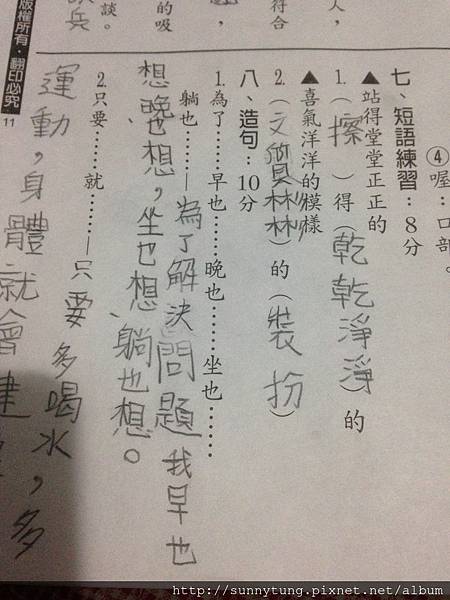 人，
符合
的吸
談。
兵
版權所有．翻印必究
11
④喔：口部。
七、短語練習：8分
▲站得堂堂正正的
1.（擦）得（乾乾淨淨）的
▲喜氣洋洋的模樣
2.（文質彬彬）的（裝扮）
八、造句：10分
1.為了……早也……晚也……坐也……
躺也……—為了解決問題我早也
想、晚也想，坐也想、躺也想。
2.只要……就……—只要多喝水，多
運動，身體就會健
http://sunnytung.pixnet.net/album